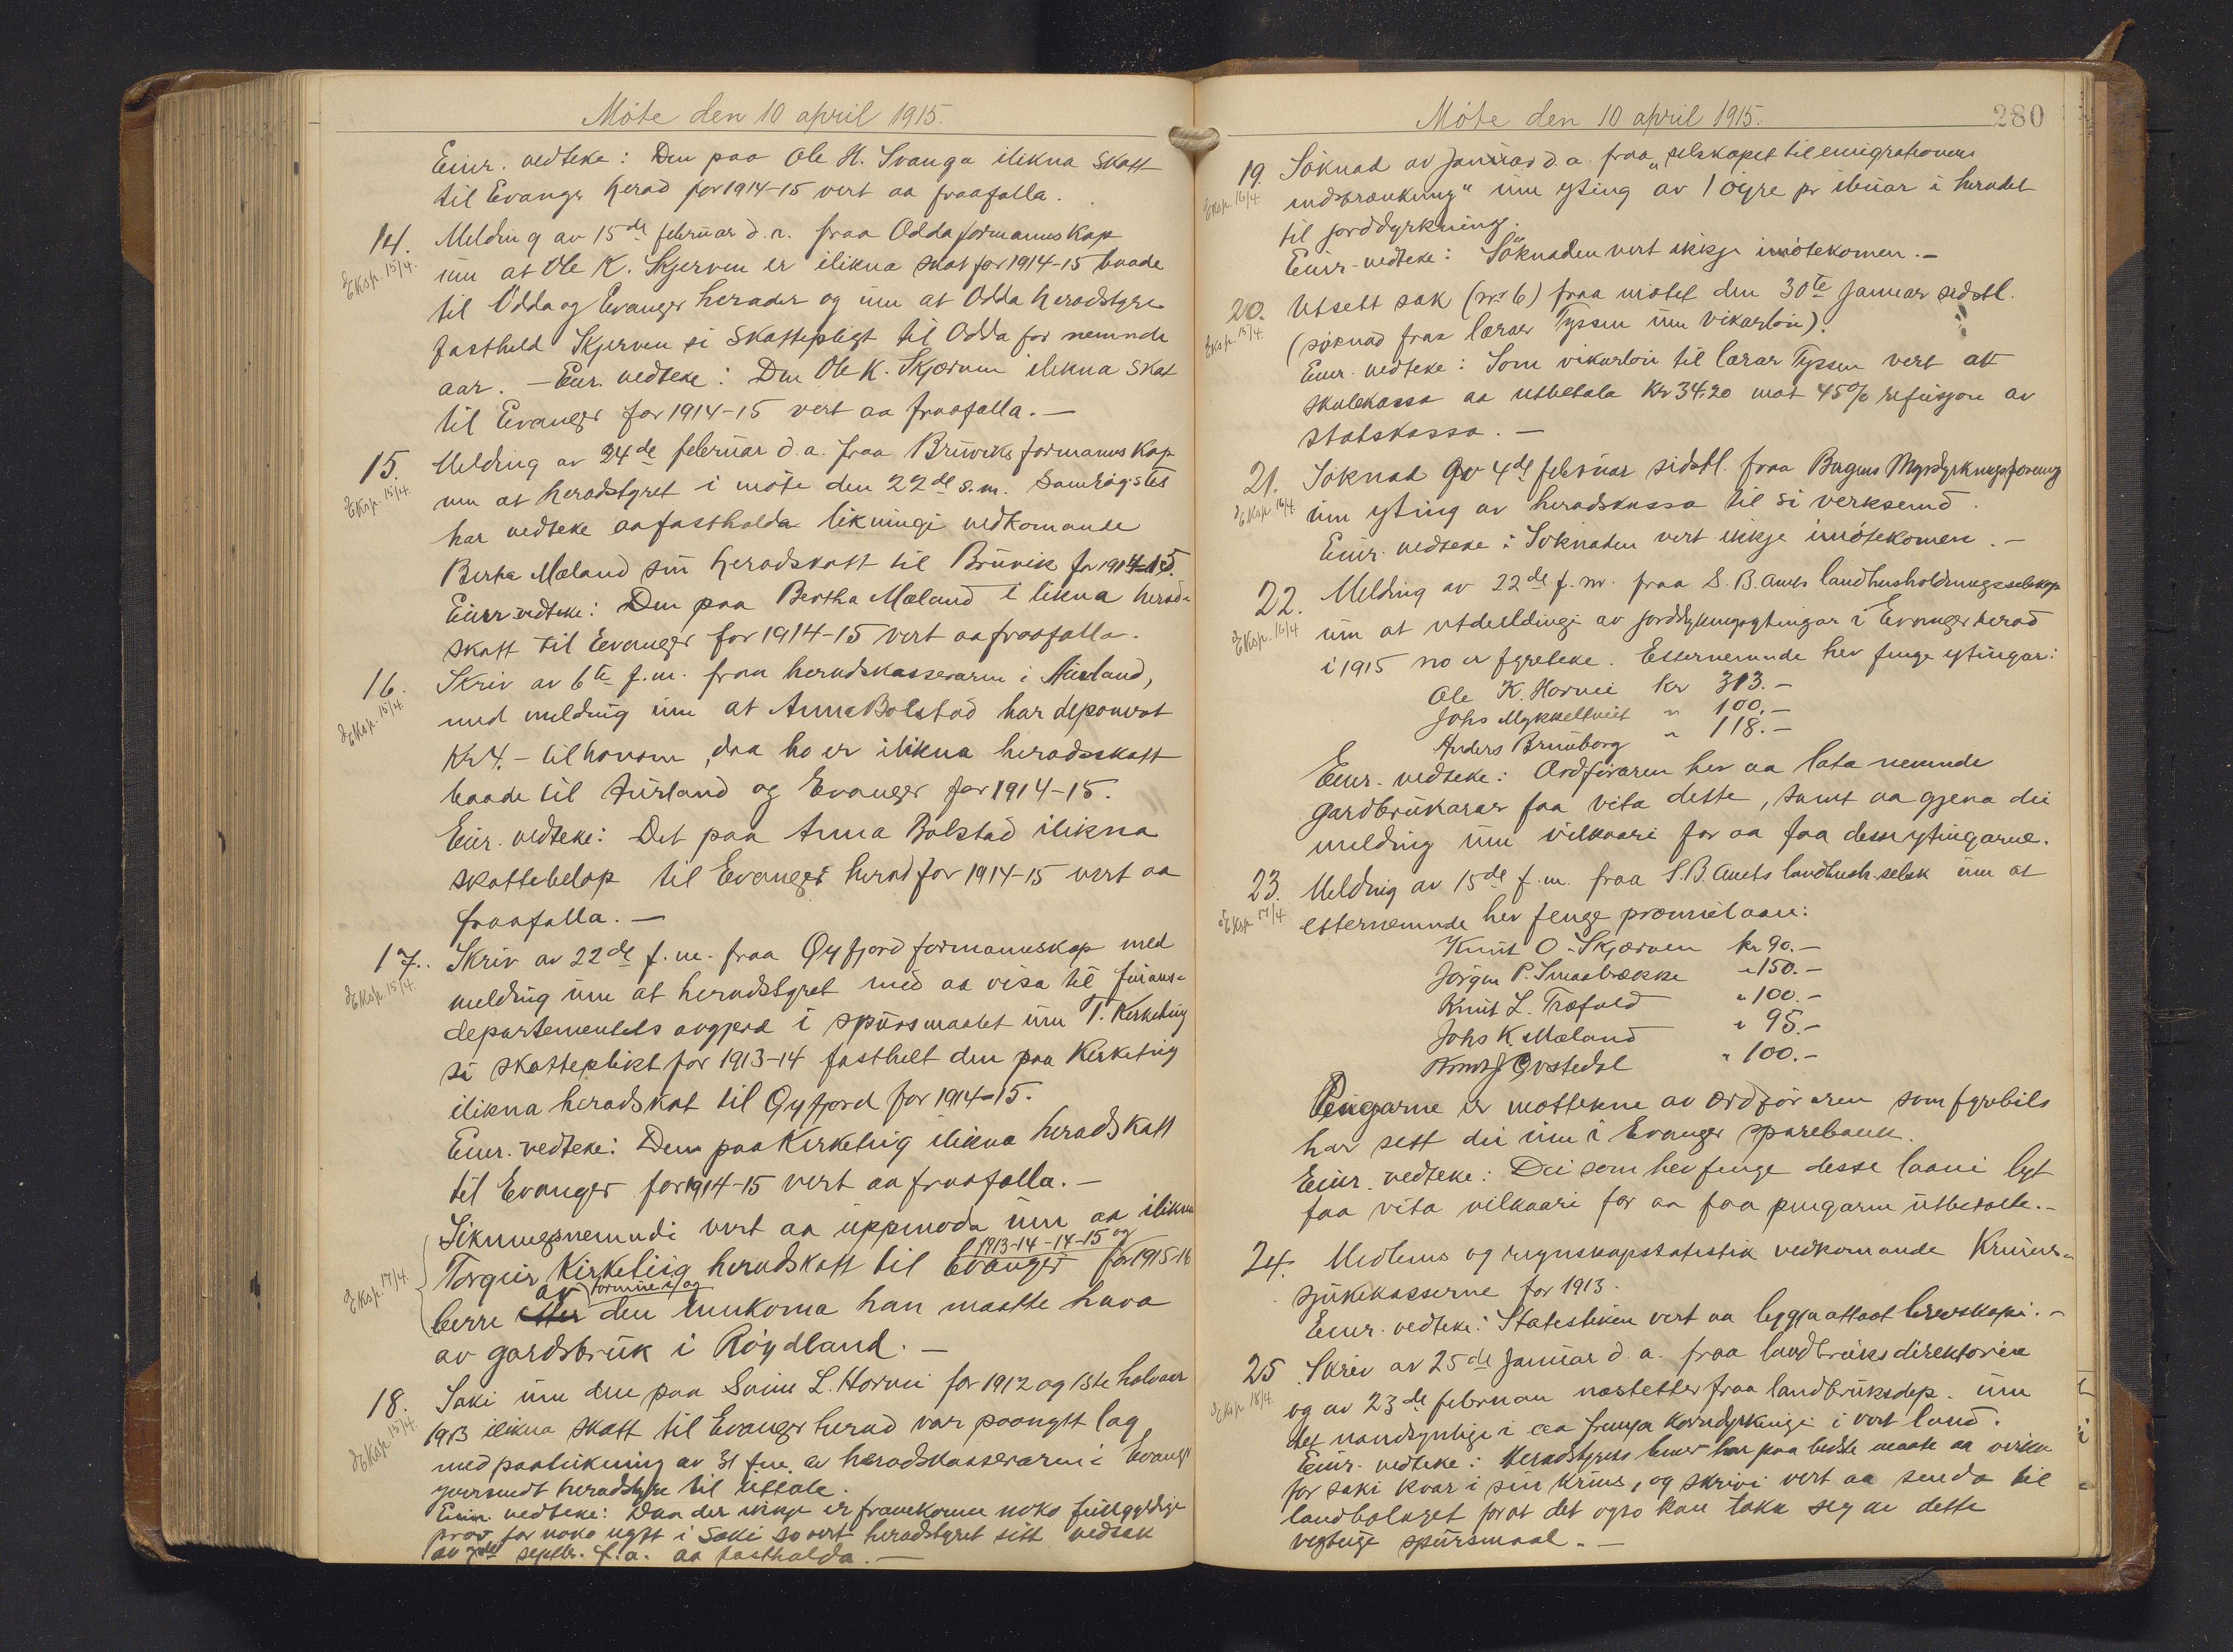 Møte den 10 april 1915.
Einr. vedteke: Den paa Ole H. Svanga ilikna skatt
til Evanger herad for 1914-15 vert aa fraafalla.
14. Melding av 15de februar d.a. fraa Odda formannskap
Eksp. 15/4. um at Ole K. Skjerven er ilikna skat for 1914-15 baade
til Odda og Evanger herader og um at Odda heradstyre
fastheld Skjerven si skattepligt til Odda for nemnde
aar. - Einr. vedteke: Den Ole K. Skjerven ilikna skat
til Evanger for 1914-15 vert aa fraafalla. -
15. Melding av 24de februar d.a. fraa Bruviks formannskap
Eksp. 15/4. um at heradstyret i møte den 22de s.m. samrøystes
har vedteke aa fastholda likningi vedkomande
Berta Mæland sin heradskatt til Bruvik for 1914-15.
Einr. vedteke: Den paa Bertha Mæland ilikna herad-
skatt til Evanger for 1914-15 vert aa fraafalla.
16. Skriv av 6te f.m. fraa heradskasseraren i Aurland,
Eksp. 15/4. med melding um at Anna Bolstad har deponert
Kr 4.- til honom, daa ho er ilikna heradsskatt
baade til Aurland og Evanger for 1914-15.
Einr. vedteke: Det paa Anna Bolstad ilikna
skattebeløp til Evanger herad for 1914-15 vert aa
fraafalla. -
17. Skriv av 22de f.m. fraa Øyfjord formannskap med
Eksp. 15/4. melding um at heradstyret med aa visa til finans-
departementets avgjerd i spursmaalet um T. Kirketeig
si skatteplikt for 1913-14 fasthelt den paa Kirketeig
ilikna heradskat til Øyfjord for 1914-15.
Einr. vedteke: Den paa Kirketeig ilikna heradskatt
til Evanger for 1914-15 vert aa fraafalla. -
Likningsnemndi vert aa uppmoda um aa ilikna
1913-14 - 14-15 og
Eksp. 17/4. Torgeir Kirketeig heradskatt til Evanger for 1915-16
av formue og
berre etter den innkoma han maatte hava
av gardsbruk i Røydland. -
18. Saki um den paa Sveins L. Horvei for 1912 og 1ste halvaar
Eksp. 15/4. 1913 ilikna skatt til Evanger herad var paanytt lag
med paateikning av 31 f.m. av heradskasseraren i Evanger
yversendt heradstyre til uttale.
Einr. vedteke: Daa der ikkje er framkome noko fullgyldige
prov for noko nytt i saki so vert heradstyret sitt vedtak
av septbr. f.a. aa fastholda. -
Møte den 10 april 1915.
280
19. Søknad av januar d.a. fraa "selskapet til emigrationens
Eksp. 16/4. indskrænkning" um yting av 1 øyre pr ibuar i heradet
til jorddyrkning.
Einr. vedteke: Søknaden vert ikkje imøtekomen. -
20. Utsett sak (nr 6) fraa møtet den 30te januar sidstl.
Eksp. 15/4. (søknad fraa lærar Tyssen um vikarløn).
Einr. vedteke: Som vikarløn til lærar Tyssen vert att
skulekassa aa utbetala Kr 34.20 mot 45% refusjon av
statskassa. -
21. Søknad av 4de februar sidstl. fraa Bugens Myrdyrkningsforening
Eksp 16/4. um yting av heradskassa til si verksemd.
Einr. vedteke: Søknaden vert ikkje imøtekomen. -
22. Melding av 22de f.m. fraa S.B. amts landhusholdningsselskap
Eksp. 16/4 um at utdeildingi av jorddyrkingsytingar i Evanger herad
i 1915 no er fyreteke. Etternemnde hev fenge ytingar:
Ole K. Horvei kr 313.-
Johs Mykkeltveit " 100.-
Anders Brunborg " 118.-
Einr. vedteke: Ordføraren hev aa lata nemnde
gardbrukarar faa vita dette, samt aa gjeva dei
melding um vilkaari for aa faa desse ytingarne.
23. Melding av 15de f.m. fraa S.B. Amts landhush.selsk um at
Eksp 17/4. etternemnde hev fenge præmielaan:
Knut O. Skjerven kr 90.-
Jørgen P. Smaabrekke " 150.-
Knut L. Træfald " 100.-
Johs K. Mæland " 95.-
Knut J Øvstedal " 100.-
Pengarne er mottekne av ordføraren som fyrebils
har sett dei inn i Evanger sparebank.
Einr. vedteke: Dei som hev fenge desse laani lyt
faa vita vilkaari for aa faa pengarne utbetalte. -
24. Medlems og regnskapsstatistik vedkomande Kriner-
sjukekasserne for 1913.
Einr. vedteke: Statestiken vert aa leggja attaat brevskapi. -
25 Skriv av 25de januar d.a. fraa landbruksdirektøren
Eksp 18/4. og av 23de februar næstetter fraa landbruksdep. um
det naudsynlige i aa fremja korndyrkingi i vort land.
Einr. vedteke: Heradstyrets lemer har paa beste maate aa virka
for saki kvar i sin krins, og skrivi vert aa senda til
landbolaget forat det ogso kan taka seg av dette
vegtuge spursmaal. -